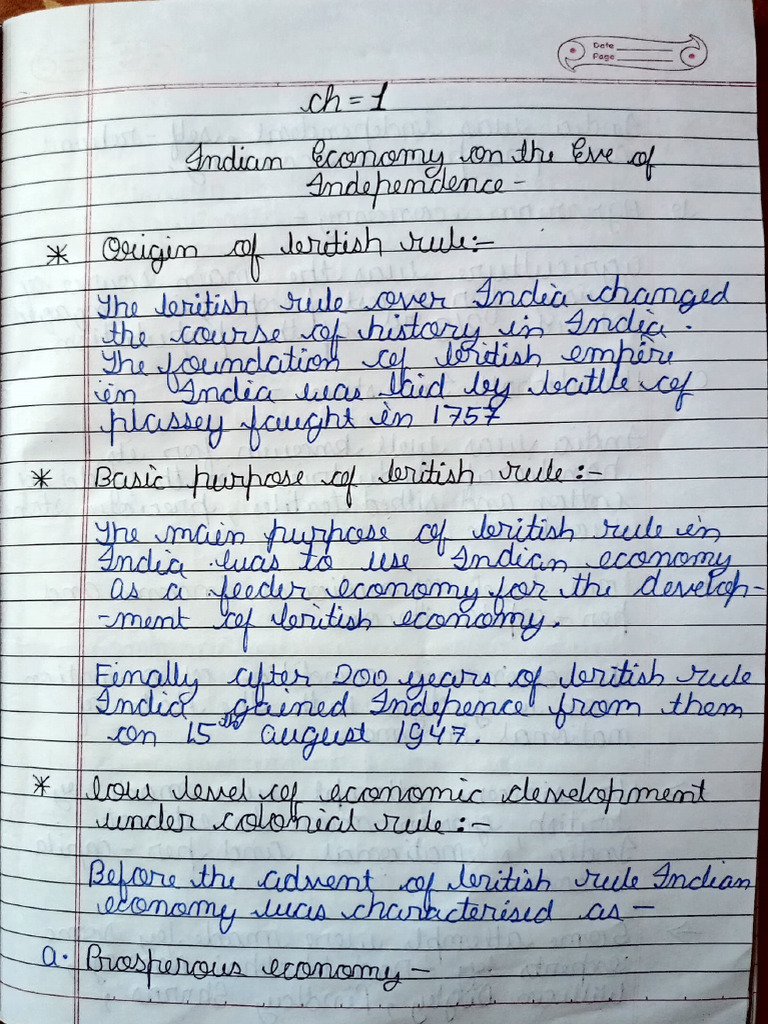 Date
Page
ch = 1
Indian Economy on the Eve of
Independence -
* Origin of british rule:-
The british rule over India changed
the course of history in India.
The foundation of british empire
in India was laid by battle of
plassey faught in 1757
* Basic purpose of british rule :-
The main purpose of british rule in
India was to use Indian economy
as a feeder economy for the develop-
-ment of british economy.
Finally after 200 years of british rule
India gained Indepence from them
on 15th august 1947.
* low level of economic development
under colonical rule :-
Before the advent of british rule Indian
economy was characterised as -
a. Prosperous economy -